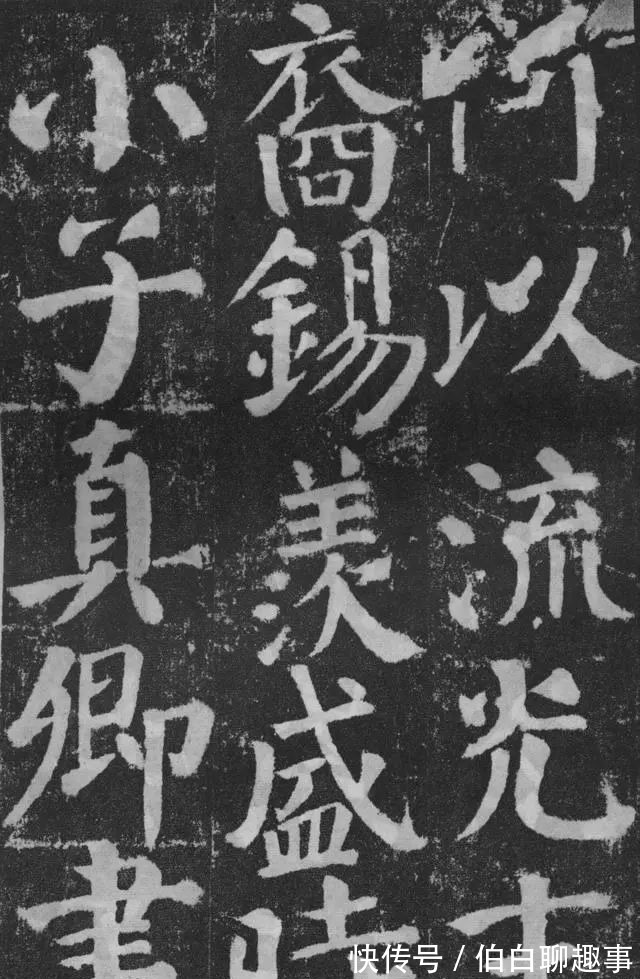 以流光
裔錫羨盛時
小子真卿書
快传号 / 伯白聊趣事